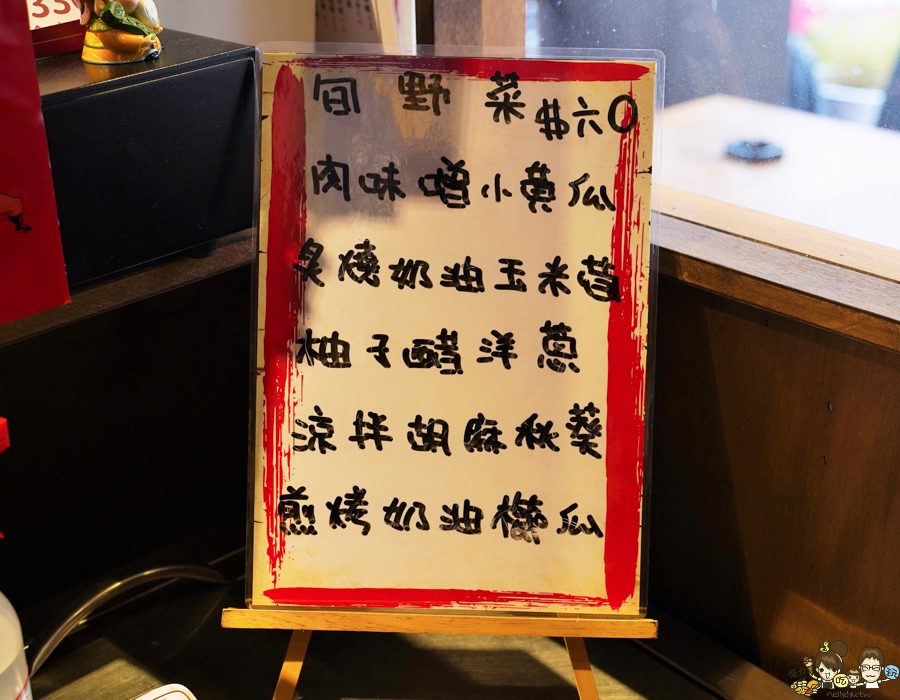 33
旬野菜 $六0
肉味噌小黄瓜
炙燒奶油玉米筍
柚子醋洋蔥
涼拌胡麻秋葵
煎烤奶油櫛瓜
nellydyu.tw